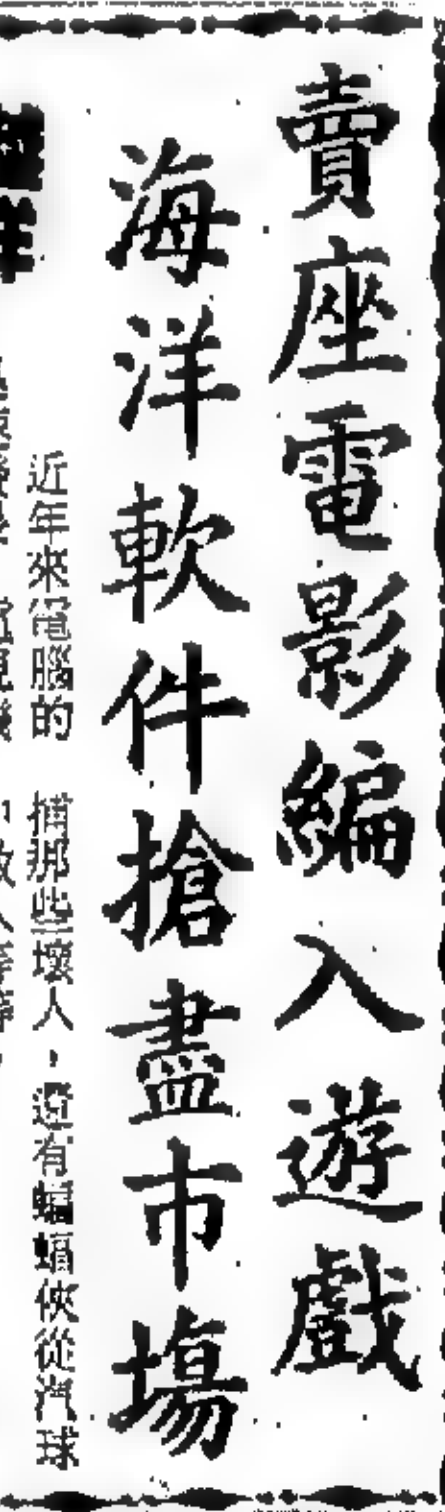 賣座電影編入遊戲
海洋軟件搶盡市場
近年來電腦的
捕那些壞人，還有蝙蝠俠從汽球